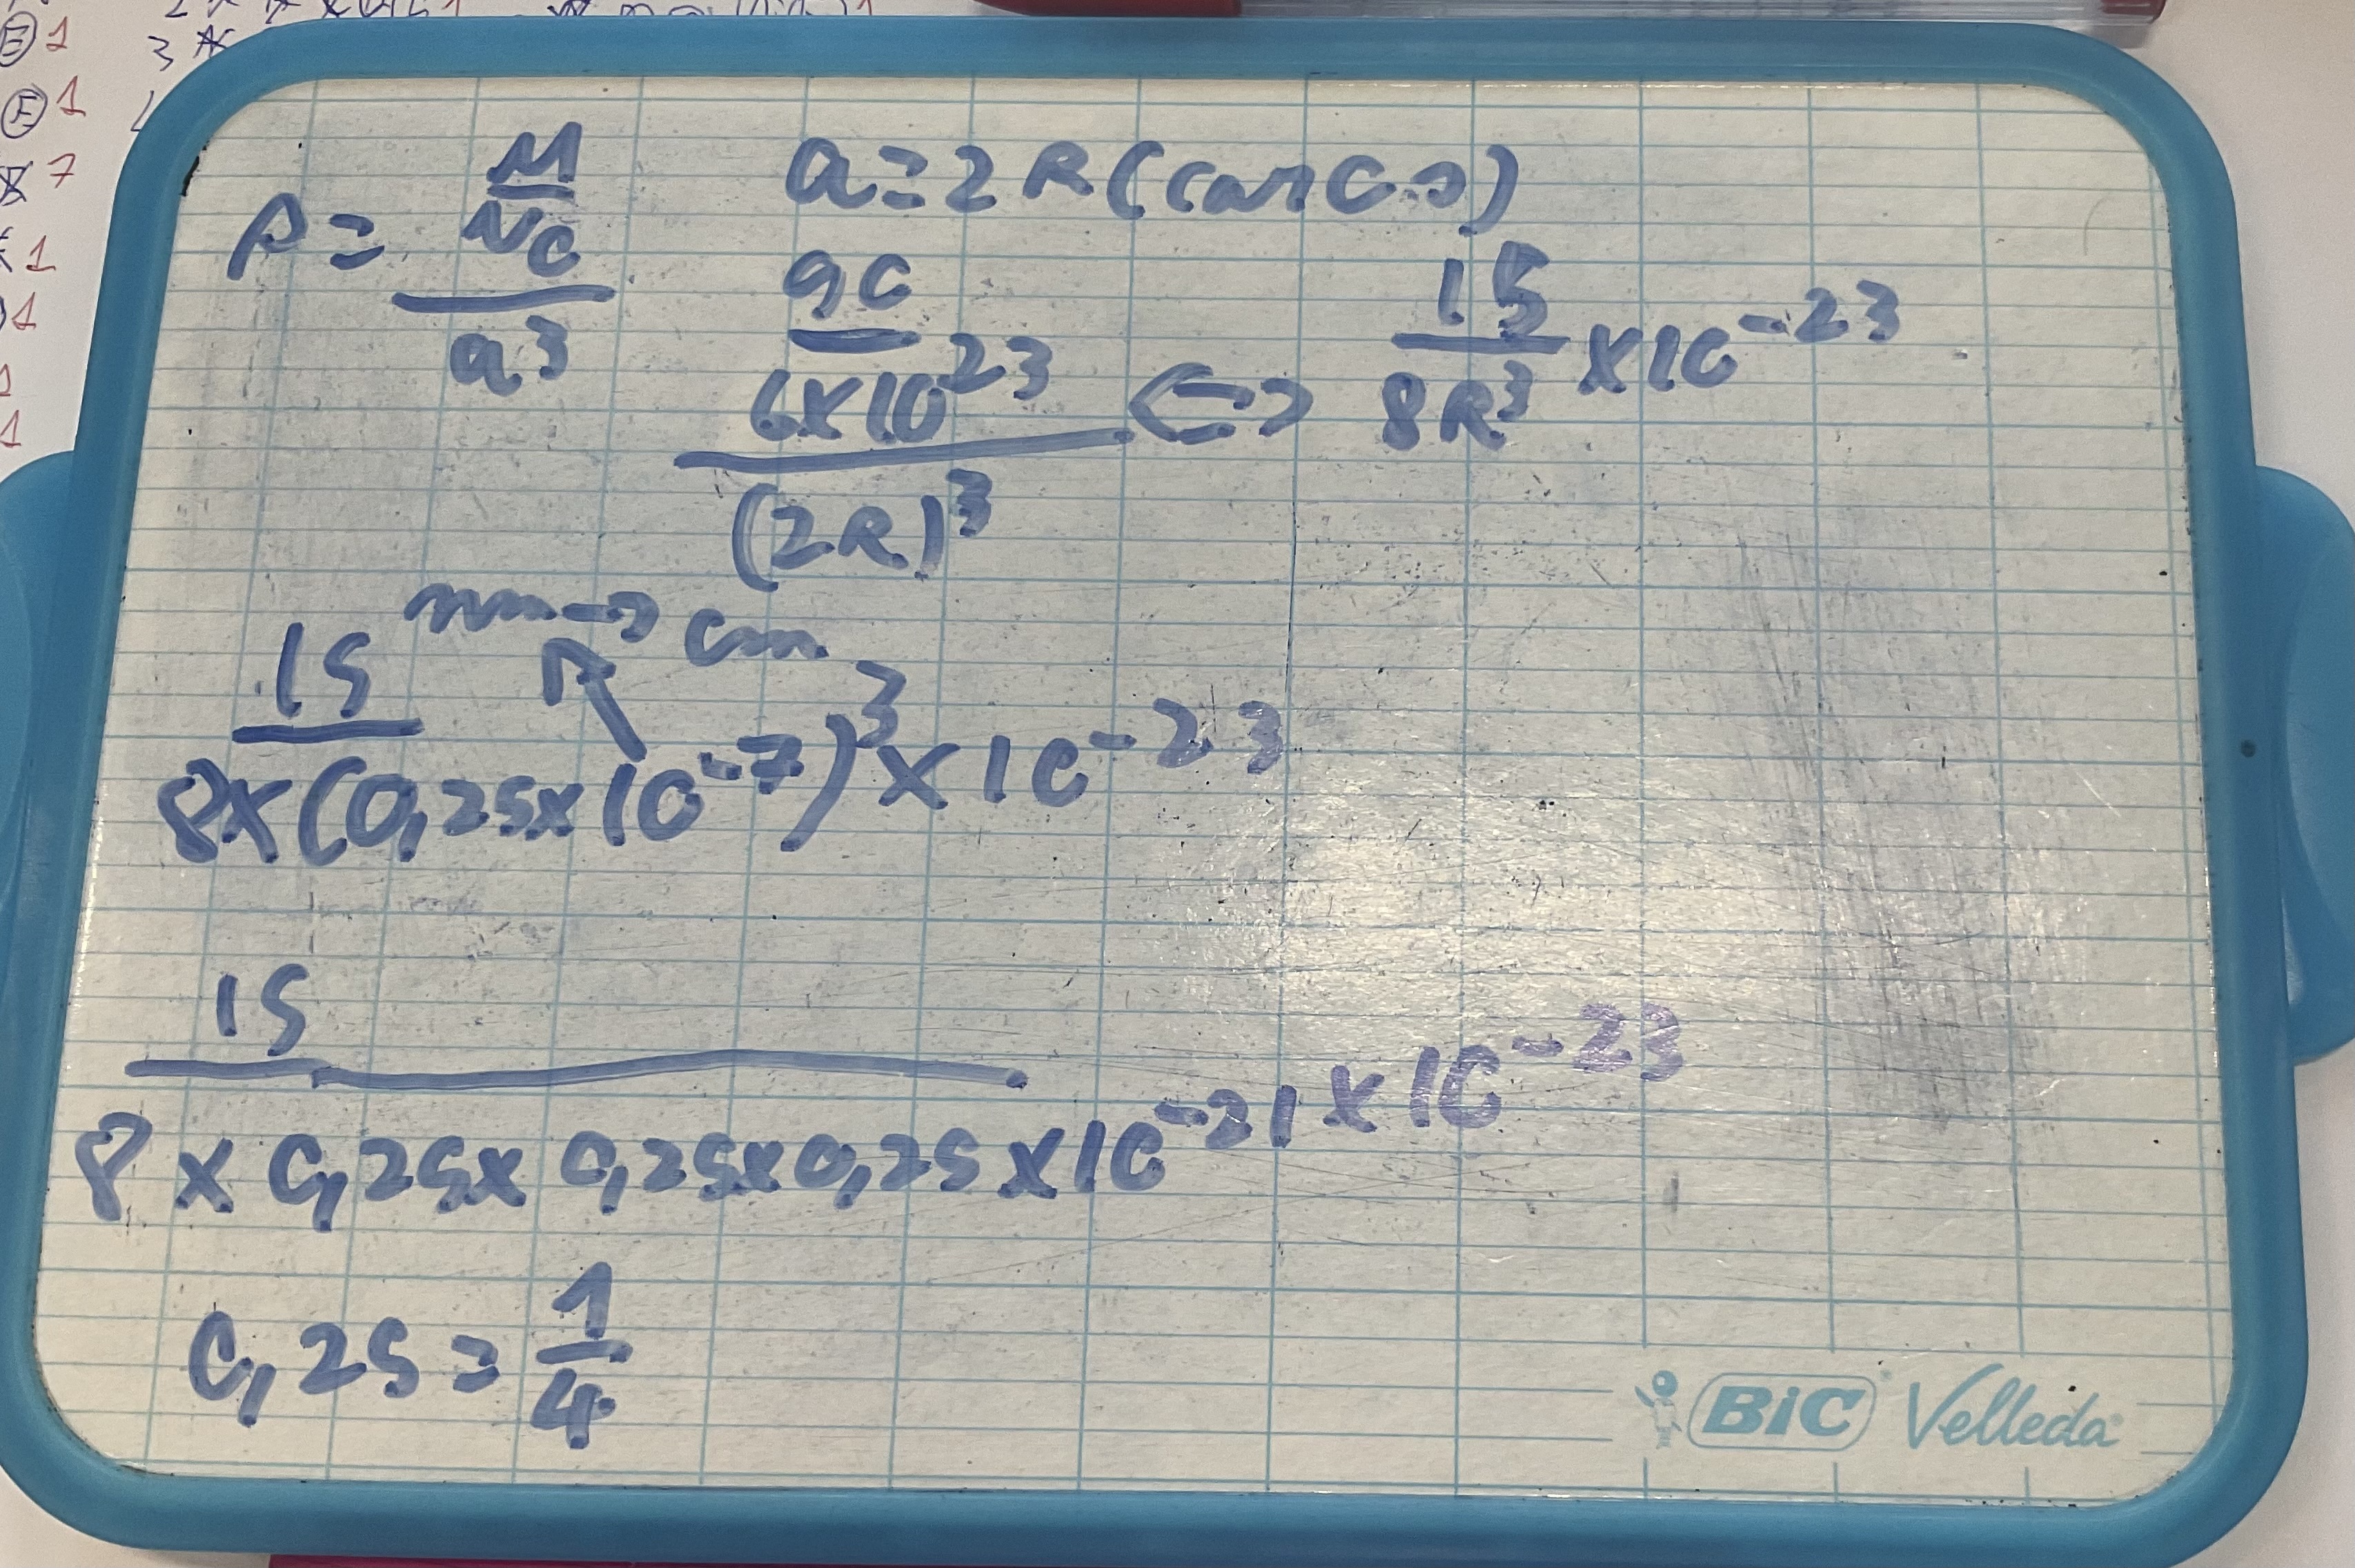 ρ = (M/Na)/a³ a = 2R (car C.S)
(90/(6×10²³))/(2R)³ <=> 15/(8R³) ×10⁻²³
nm → cm
15/(8×(0,25×10⁻⁷)³) ×10⁻²³
15/(8 × 0,25 × 0,25 × 0,25 ×10⁻²¹) ×10⁻²³
0,25 = 1/4
BiC Velleda